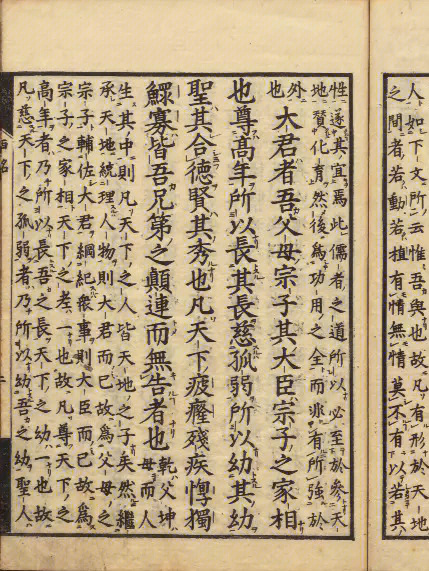 人如下文所云惟吾與也故有形於天地
之間者若動若植有情無情莫不有以若其
性遂其宜焉此儒者之道所以必至於參天
地贊化育然後爲功用之全而非有所強於
外
也
大君者吾父母宗子其大臣宗子之家相
也尊高年所以長其長慈孤弱所以幼其幼
聖其合德賢其秀也凡天下疲癃殘疾惸獨
鰥寡皆吾兄第之顛連而無告者也
乾父坤
母而人
生其中則凡天下之人皆天地之子矣然繼
承天地統理人物則大君而已故爲父母之
宗子輔佐大君綱紀衆事則大臣而已故爲
宗子之家相天下之老一也故凡尊天下之
高年者乃所以長吾之長天下之幼一也故
凡慈天下之孤弱者乃所以幼吾之幼聖人